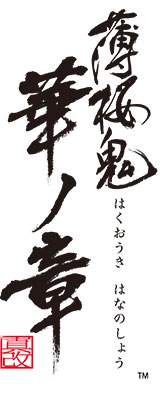 薄桜鬼
はくおうき はなのしょう
華ノ章
真改
TM